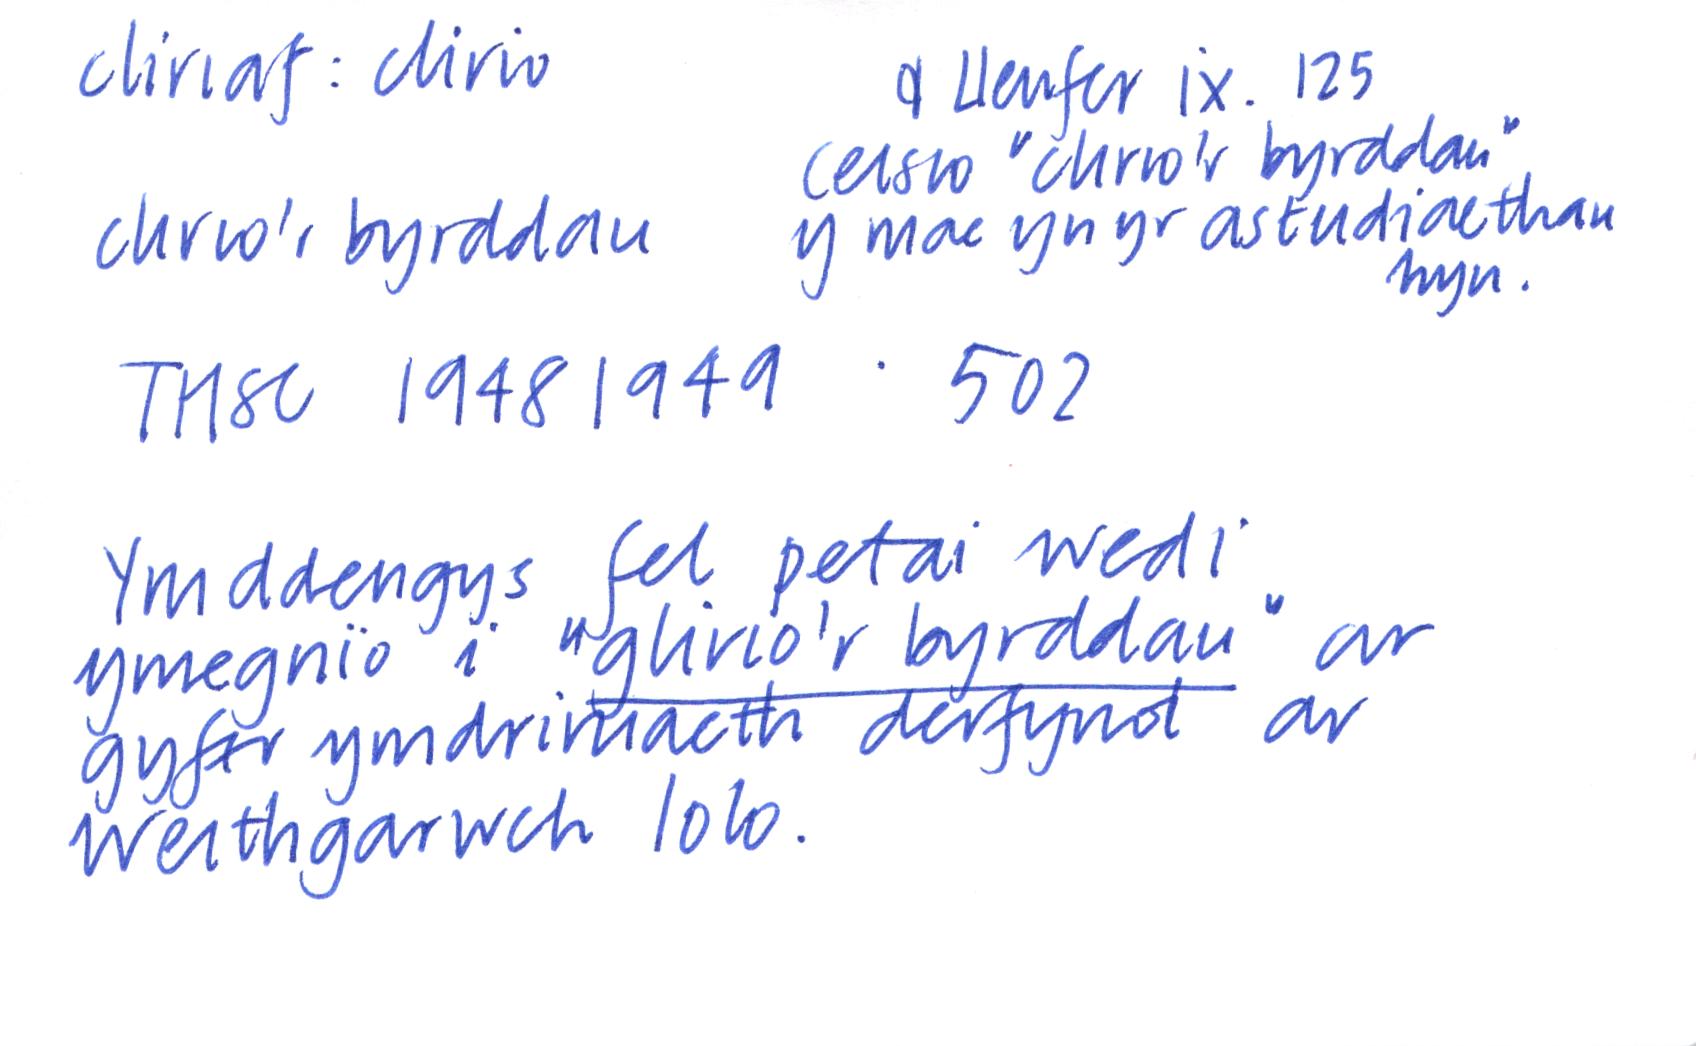 cliriaf: clirio
clirio'r byrddau
a Lleufer ix. 125
Ceisio "clirio'r byrddau"
y mae yn yr astudiaethau
hyn.
THSC 1948 1949 . 502
Ymddengys fel petai wedi
ymegnïo i "glirio'r byrddau" ar
gyfer ymdriniaeth derfynol ar
weithgarwch Iolo.